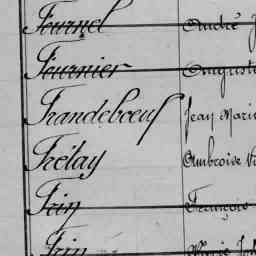 Fournel André
Fournier Auguste
Frandeboeuf Jean Marie
Frélay Ambroise
Frin François
Frin Marie